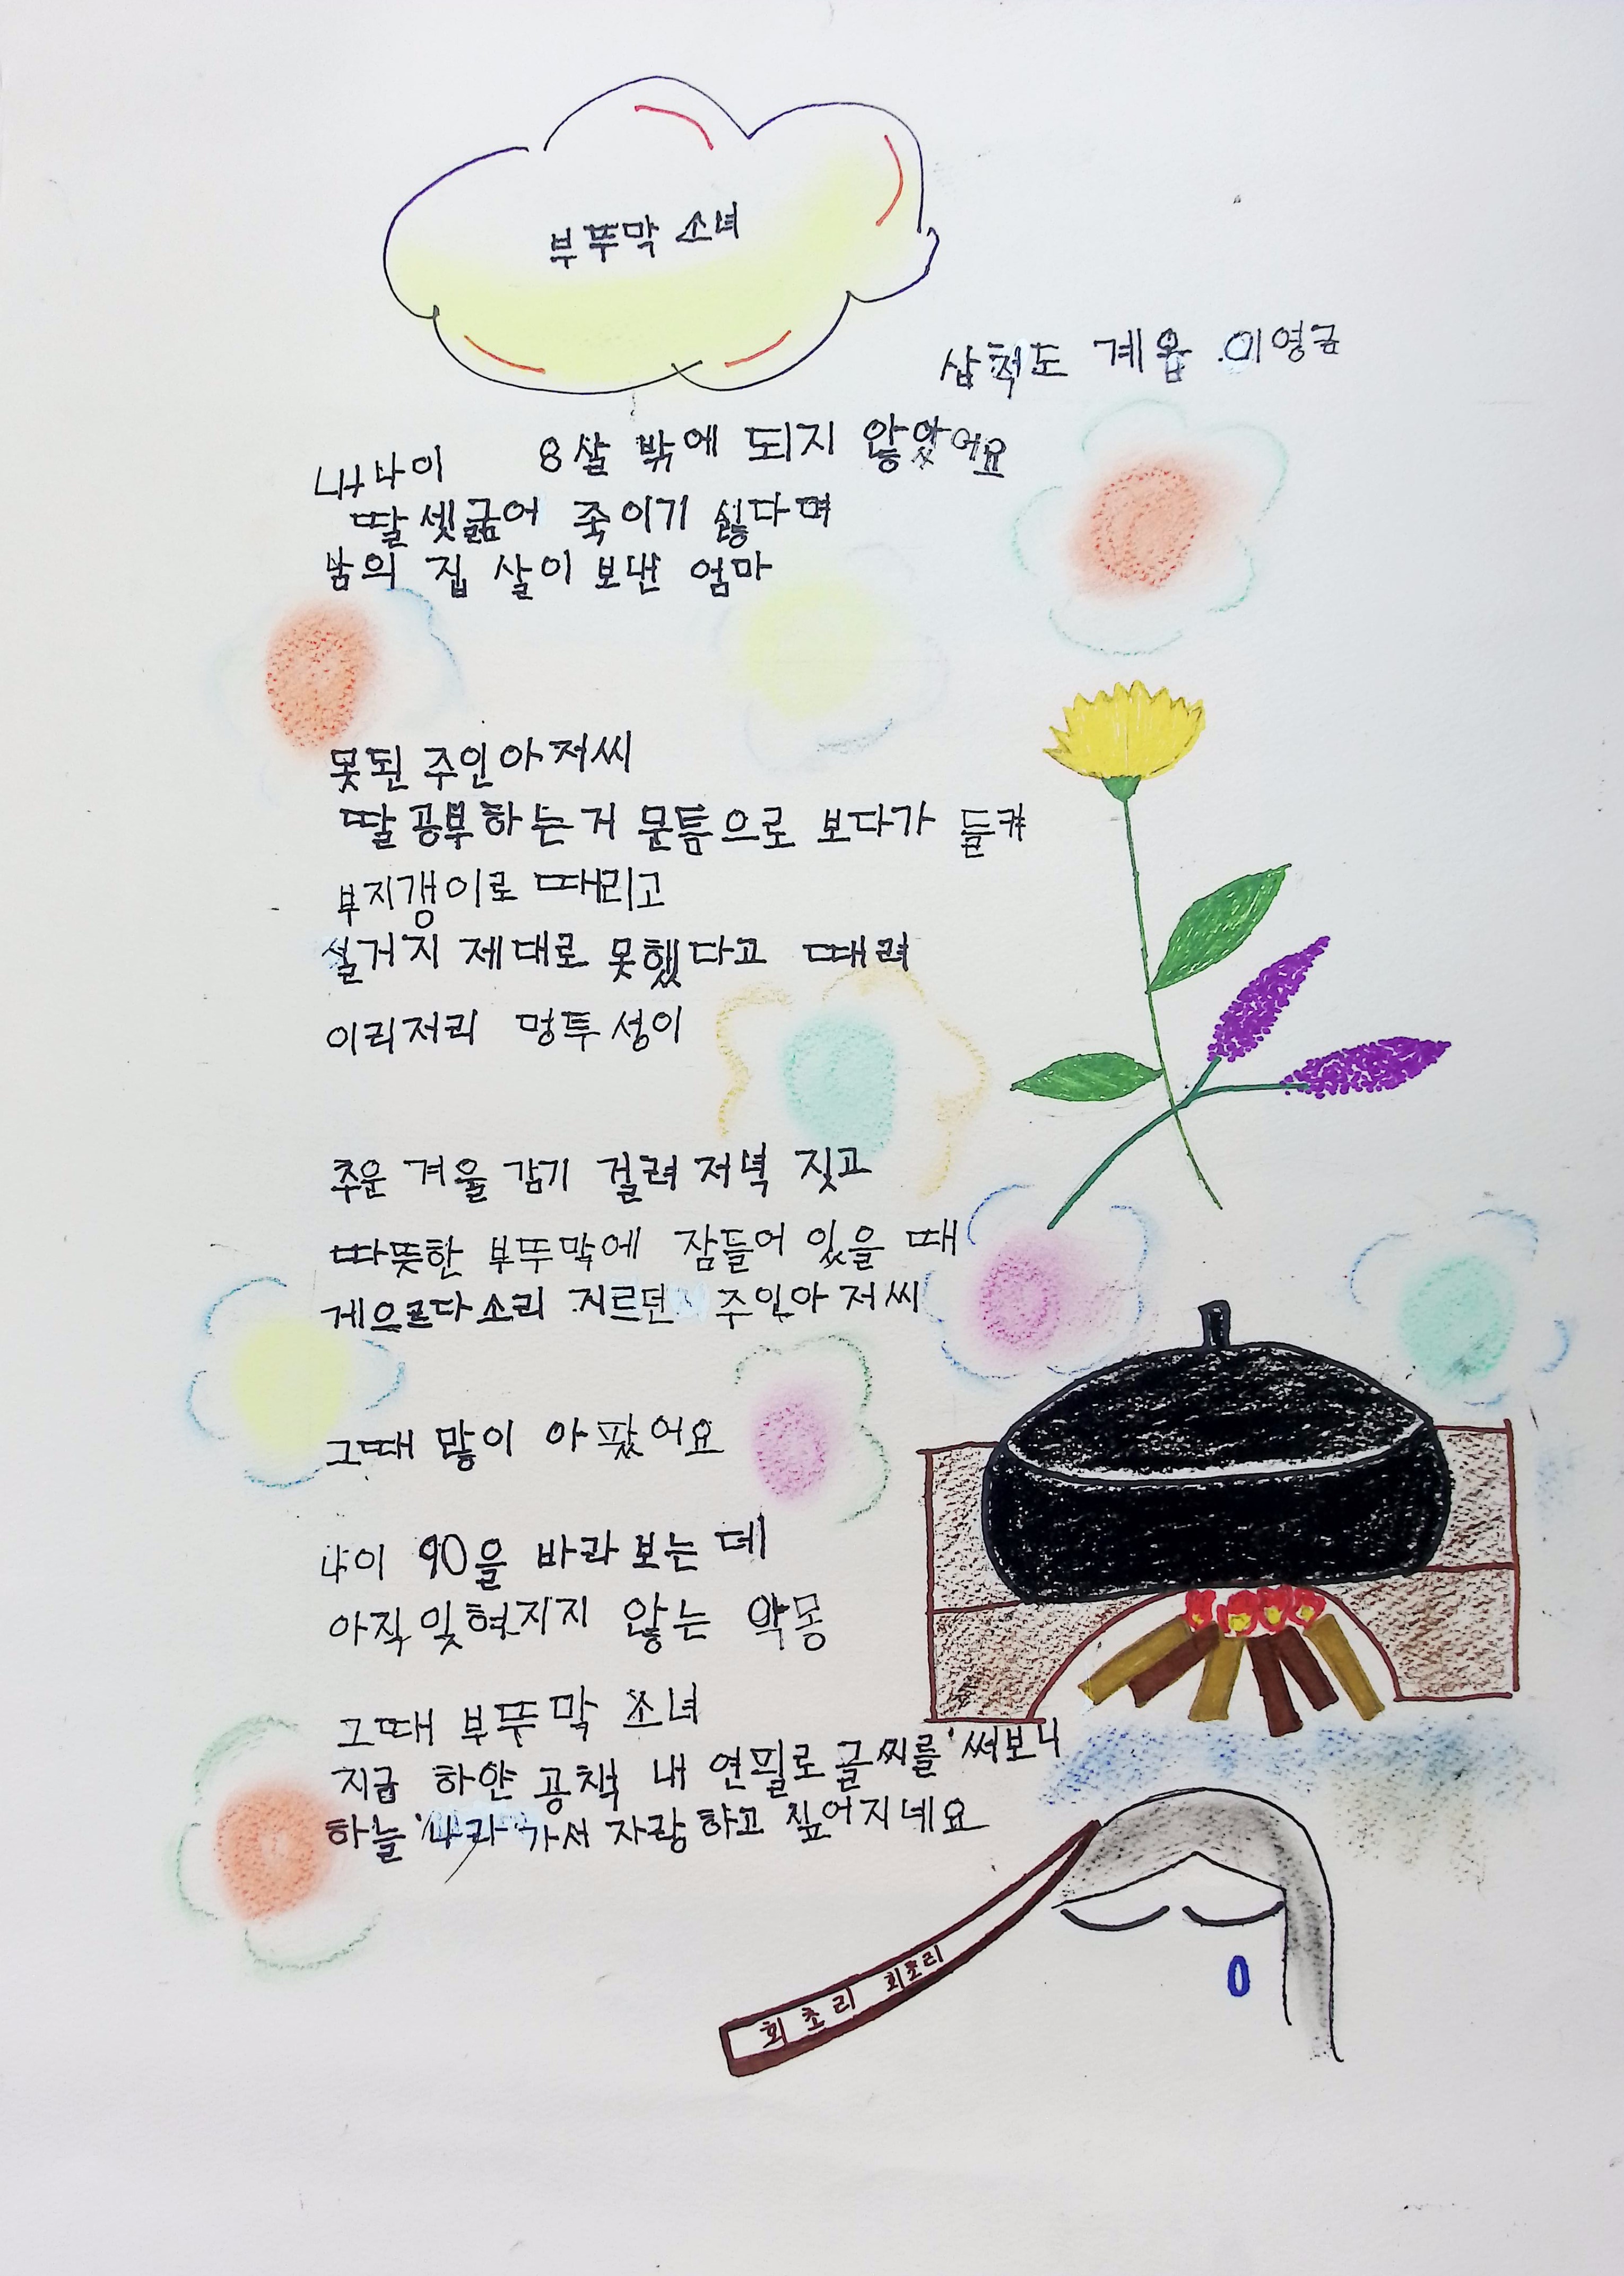 부뚜막 소녀
삼척도 계읍 이영금
내나이 8살 밖에 되지 않았어요
딸 셋굶어 죽이기 싫다며
남의 집 살이 보낸 엄마
못된 주인아저씨
딸 공부하는거 문틈으로 보다가 들켜
부지갱이로 때리고
설거지 제대로 못했다고 때려
이리저리 멍투성이
추운 겨울 감기 걸려 저녁 짓고
따뜻한 부뚜막에 잠들어 있을 때
게으르다 소리 지르던 주인아저씨
그때 많이 아팠어요
나이 90을 바라보는데
아직 잊혀지지 않는 악몽
그때 부뚜막 소녀
지금 하얀 공책 내 연필로 글씨를 써보니
하늘 나라 가서 자랑하고 싶어지네요
회초리 회초리